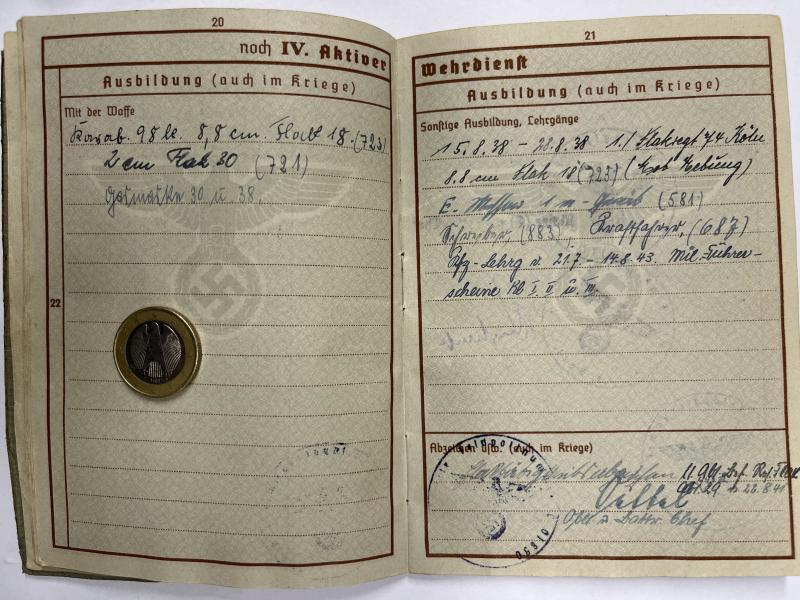 20
noch IV. Aktiver
Ausbildung (auch im Kriege)
Mit der Waffe
Karab. 98 k. 8,8 cm. Flak 18. (723)
2 cm Flak 30 (721)
Gasmaske 30 u 38.
22
21
Wehrdienst
Ausbildung (auch im Kriege)
Sonstige Ausbildung, Lehrgänge
15.8.38 – 28.8.38 1./Flakregt 74 Köln
8.8 cm Flak 18 (723)
E. 1 m (581)
Schreiber (883) Kraftfahrer, (687)
Kfz-Lehrg v 21.7 – 14.8.43. Mil. Führer-
scheine Kl I II u. III.
Abzeichen usw. (auch im Kriege)
22.8.41
Chef